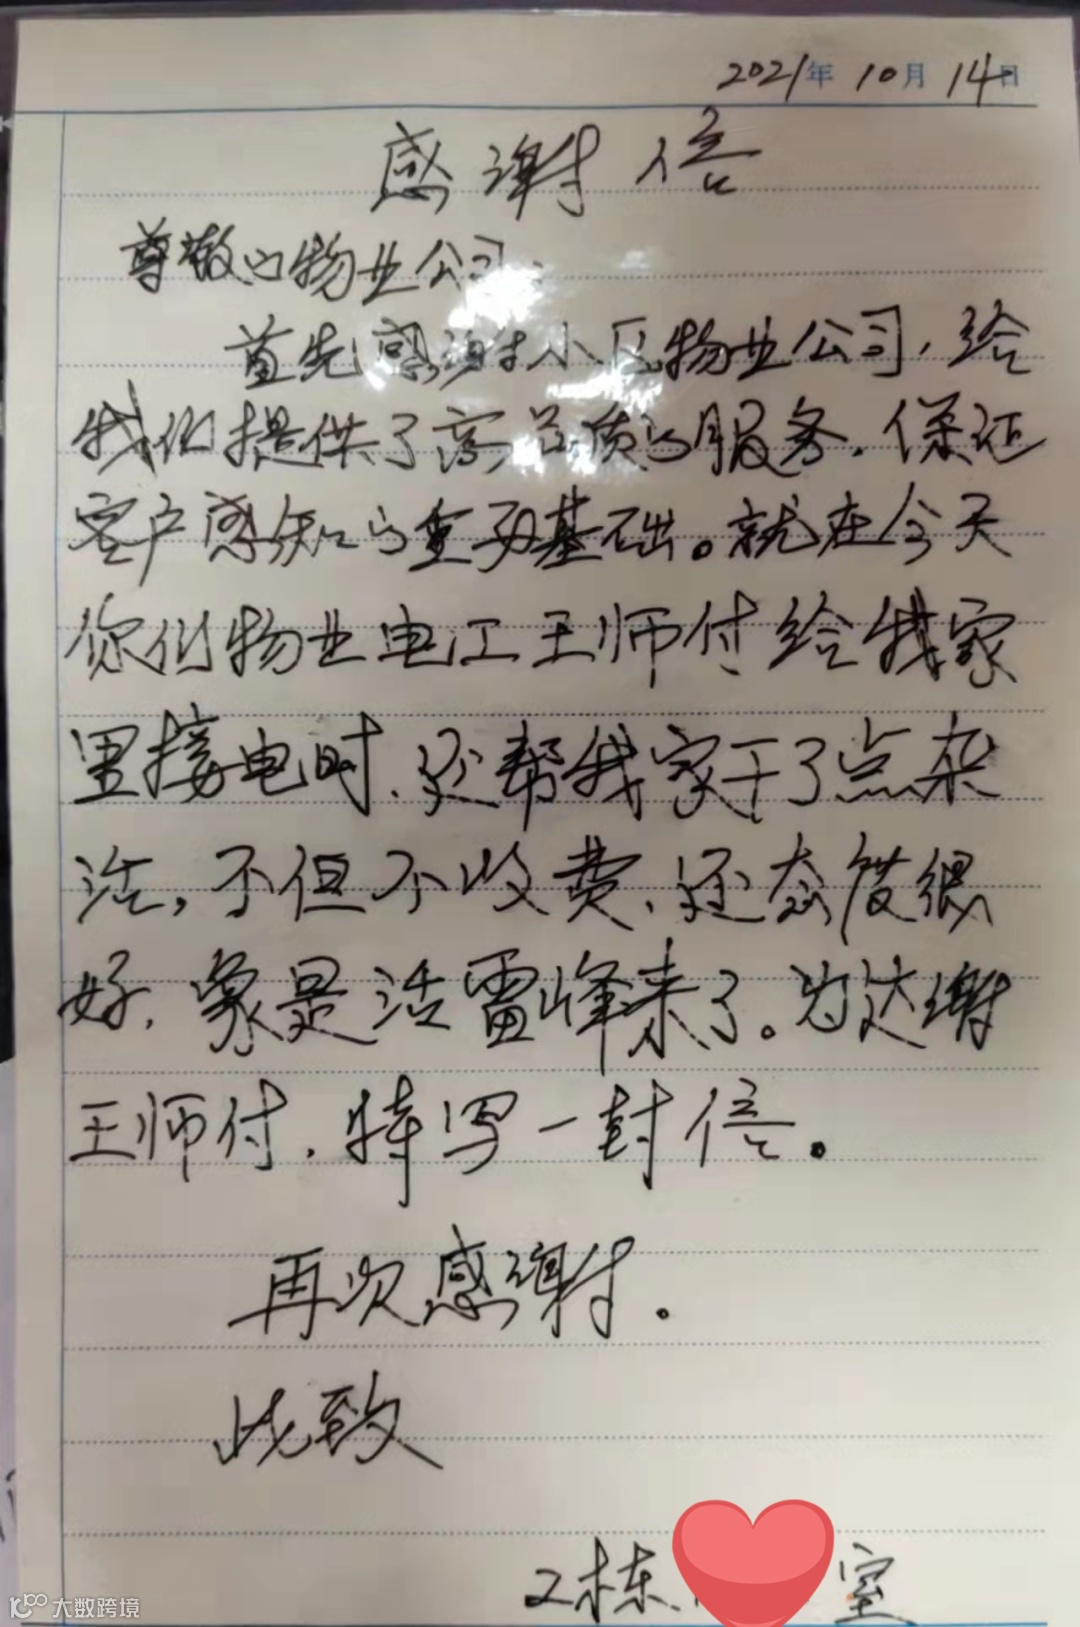 2021年 10月 14日
感谢信
尊敬的物业公司：
首先感谢小区物业公司，给
我们提供了高品质的服务，保证
客户感知的重要基础。就在今天
你们物业电工王师付给我家
里接电时，还帮我家干了点杂
活，不但不收费，还态度很
好，象是活雷峰来了。为达谢
王师付，特写一封信。
再次感谢。
此致
2栋 室
大数跨境